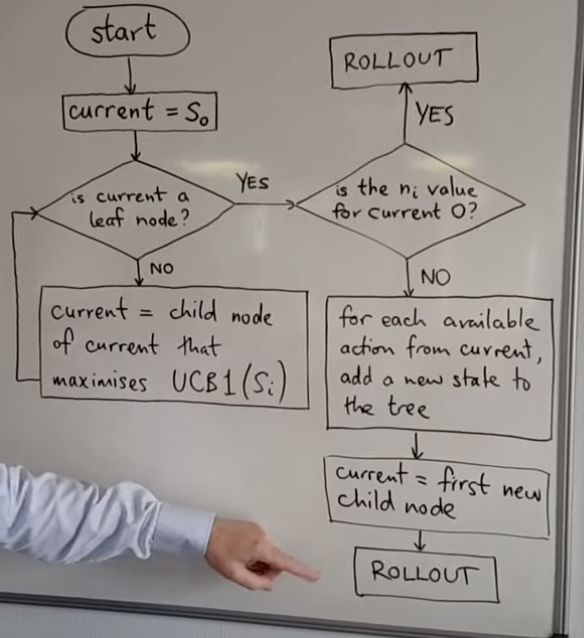 start
current = S₀
is current a
leaf node?
YES
NO
current = child node
of current that
maximises UCB1(Sᵢ)
ROLLOUT
YES
is the nᵢ value
for current 0?
NO
for each available
action from current,
add a new state to
the tree
current = first new
child node
ROLLOUT